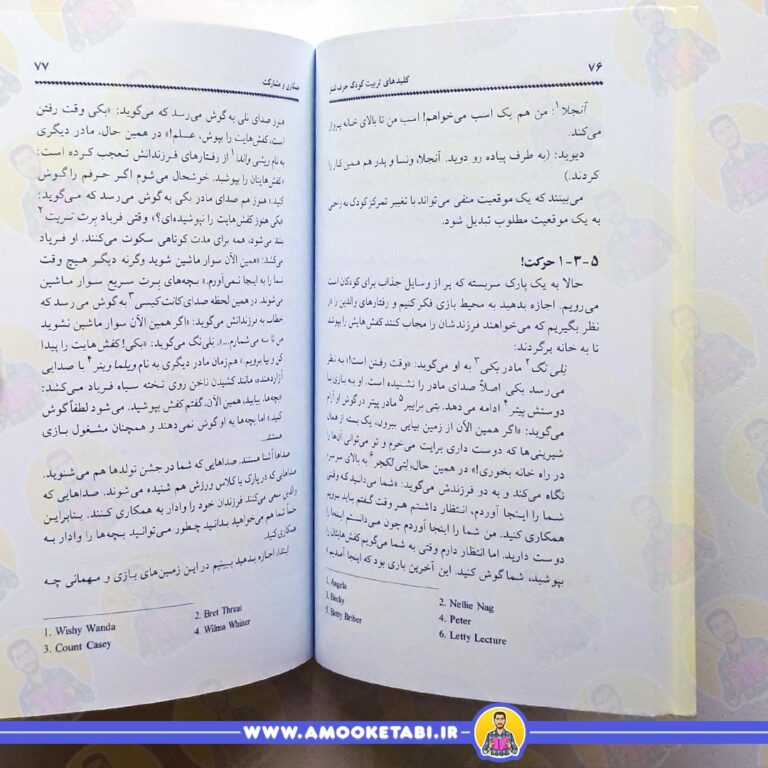 ۷۶
کلیدهای تربیت کودک حرف شنو
آنجلا۱: من هم یک اسب می‌خواهم! اسب من تا بالای خانه پرواز
می‌کند.
دیوید: (به طرف پیاده رو دوید. آنجلا، ونسا و پدر هم همین کار را
کردند.)
می‌بینند که یک موقعیت منفی می‌تواند با تغییر تمرکز کودک به راحتی
به یک موقعیت مطلوب تبدیل شود.
۵-۳-۱ حرکت!
حالا به یک پارک سربسته که پر از وسایل جذاب برای کودکان است
می‌رویم. اجازه بدهید به محیط بازی فکر کنیم و رفتارهای والدین را در
نظر بگیریم که می‌خواهند فرزندشان را مجاب کنند کفش‌هایش را بپوشد
تا به خانه برگردند:
نِلِی نگ۲ مادر بکی۳ به او می‌گوید: «وقت رفتن است!» به نظر
می‌رسد بکی اصلاً صدای مادر را نشنیده است. او به بازی با
دوستش پیتر۴ ادامه می‌دهد. بتی برایبر۵ مادر پیتر در گوش او آرام
می‌گوید: «اگر همین الآن از زمین بیایی بیرون، یک بسته از همان
شیرینی‌ها که دوست داری برایت می‌خرم و تو می‌توانی آن‌ها را
در راه خانه بخوری!» در همین حال، لِتی لکچر۶ به بالای سرسره
نگاه می‌کند و به دو فرزندش می‌گوید: «شما می‌دانید که وقتی
شما را اینجا آوردم، انتظار داشتم هر وقت گفتم بیاید برویم
همکاری کنید. من شما را اینجا آوردم چون می‌دانستم اینجا را
دوست دارید. اما انتظار دارم وقتی به شما می‌گویم کفش‌هایتان را
بپوشید، شما گوش کنید. این آخرین باری بود که اینجا آمدیم.»
1. Angela
2. Nellie Nag
3. Becky
4. Peter
5. Betty Briber
6. Letty Lecture
۷۷
همکاری و مشارکت
هنوز صدای نلی به گوش می‌رسد که می‌گوید: «بکی وقت رفتن
است، کفش‌هایت را بپوش، عسلم!» در همین حال، مادر دیگری
به نام ریشی واندا۱ از رفتارهای فرزندانش تعجب کرده است:
«کفش‌هایتان را بپوشید. خوشحال می‌شوم اگر حرفم را گوش
کنید.» هنوز هم صدای مادر بکی به گوش می‌رسد که می‌گوید:
«بکی هنوز کفش‌هایت را نپوشیده‌ای؟» وقتی فریاد بِرت تریت۲
بلند می‌شود، همه برای مدت کوتاهی سکوت می‌کنند. او فریاد
می‌کند: «همین الآن سوار ماشین شوید وگرنه دیگر هیچ وقت
شما را به اینجا نمی‌آورم.» بچه‌های بِرت سریع سوار ماشین
می‌شوند. در همین لحظه صدای کانت کیسی۳ به گوش می‌رسد که
خطاب به فرزندانش می‌گوید: «اگر همین الآن سوار ماشین نشوید
من تا سه می‌شمارم...». نِلی‌نگ می‌گوید: «بکی! کفش‌هایت را پیدا
کن و بیا برویم.» همزمان مادر دیگری به نام ویلما وینر۴ با صدایی
آزاردهنده، مانند کشیدن ناخن روی تخته سیاه فریاد می‌کشد:
«بچه‌ها، بیایید، همین الآن، گفتم کفش بپوشید. می‌شود لطفاً گوش
کنید.» اما بچه‌ها به او گوش نمی‌دهند و همچنان مشغول بازی
هستند...
صداها آشنا هستند. صداهایی که شما در جشن تولدها هم می‌شنوید.
صداهایی که در پارک یا کلاس ورزش هم شنیده می‌شوند. صداهایی که
والدین سعی می‌کنند فرزندان خود را وادار به همکاری کنند. بنابراین
حتماً شما هم می‌خواهید بدانید چطور می‌توانید بچه‌ها را وادار به
همکاری کنید.
ابتدا، اجازه بدهید ببینیم در این زمین‌های بازی و مهمانی چه
1. Wishy Wanda
2. Bret Threat
3. Count Casey
4. Wilma Whiner
WWW.AMOOKETABI.IR